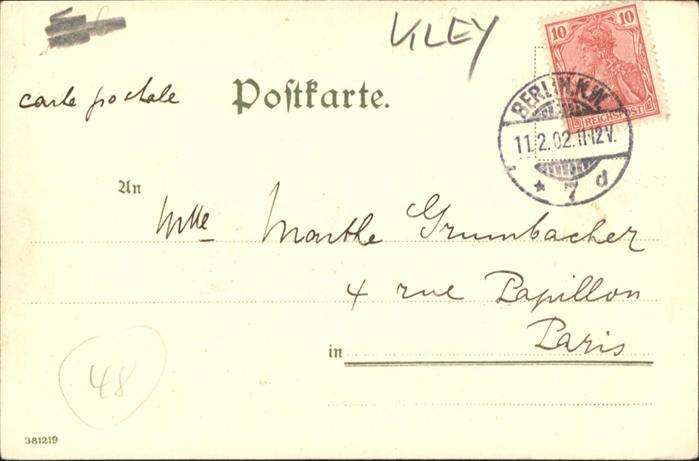 KILEY
10 10
REICHSPOST
carte postale
Postkarte.
BERLIN N.W.
11.2.02.11-12V.
* 7 d
An
Mlle Marthe Grumbacher
4 rue Papillon
Paris
in
48
381219